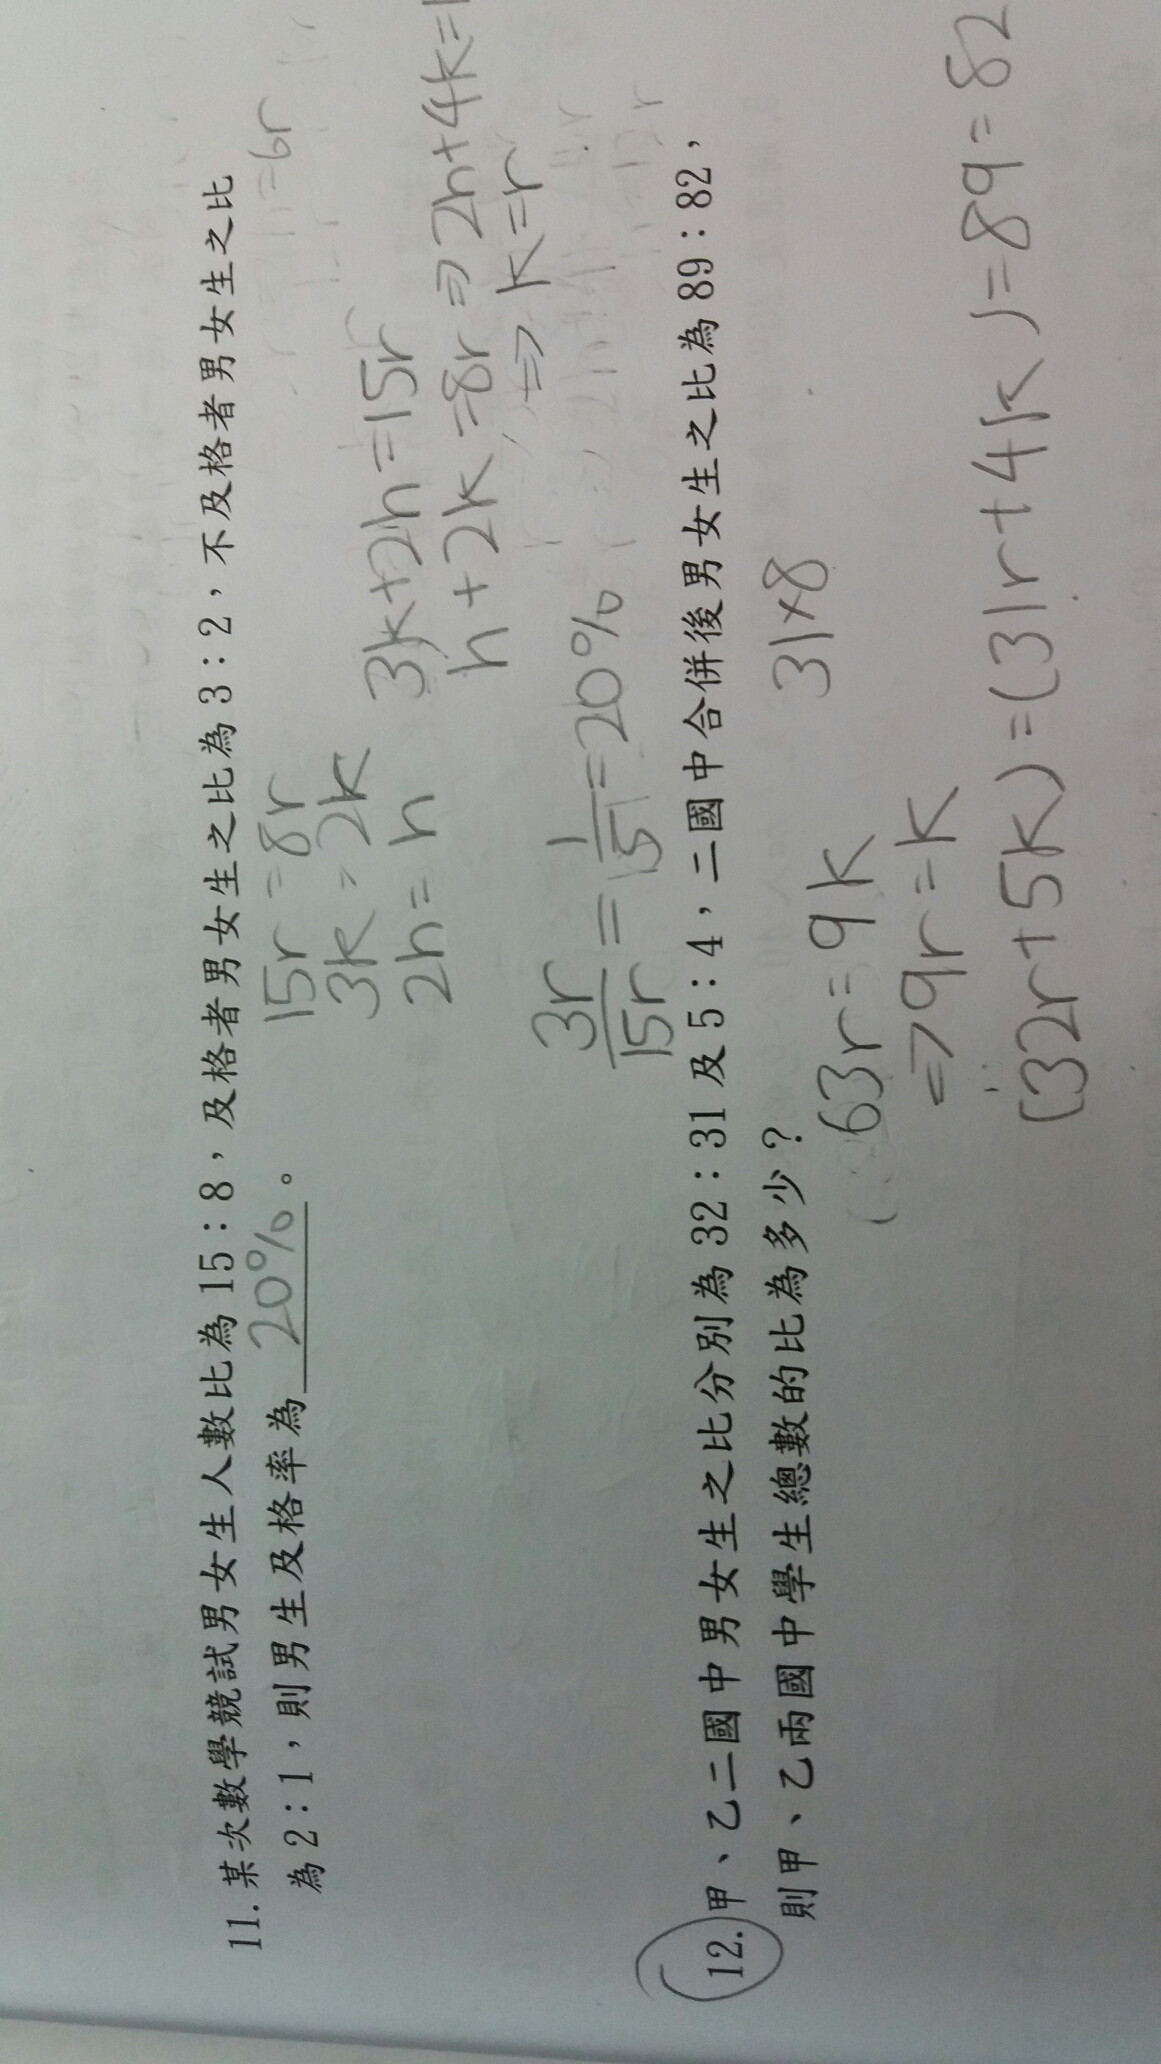 11. 某次數學競試男女生人數比為 15：8，及格者男女生之比為 3：2，不及格者男女生之比
為 2：1，則男生及格率為 20% 。
15r = 8r
3k , 2k
2h = h
3k+2h=15r
h+2k=8r ⇒ 2h+4k=
⇒ k=r
3r/15r = 1/5 = 20%
12. 甲、乙二國中男女生之比分別為 32：31 及 5：4，二國中合併後男女生之比為 89：82，
則甲、乙兩國中學生總數的比為多少？
63r=9k
31×8
⇒9r=k
(32r+5k)=(31r+4k)=89=82